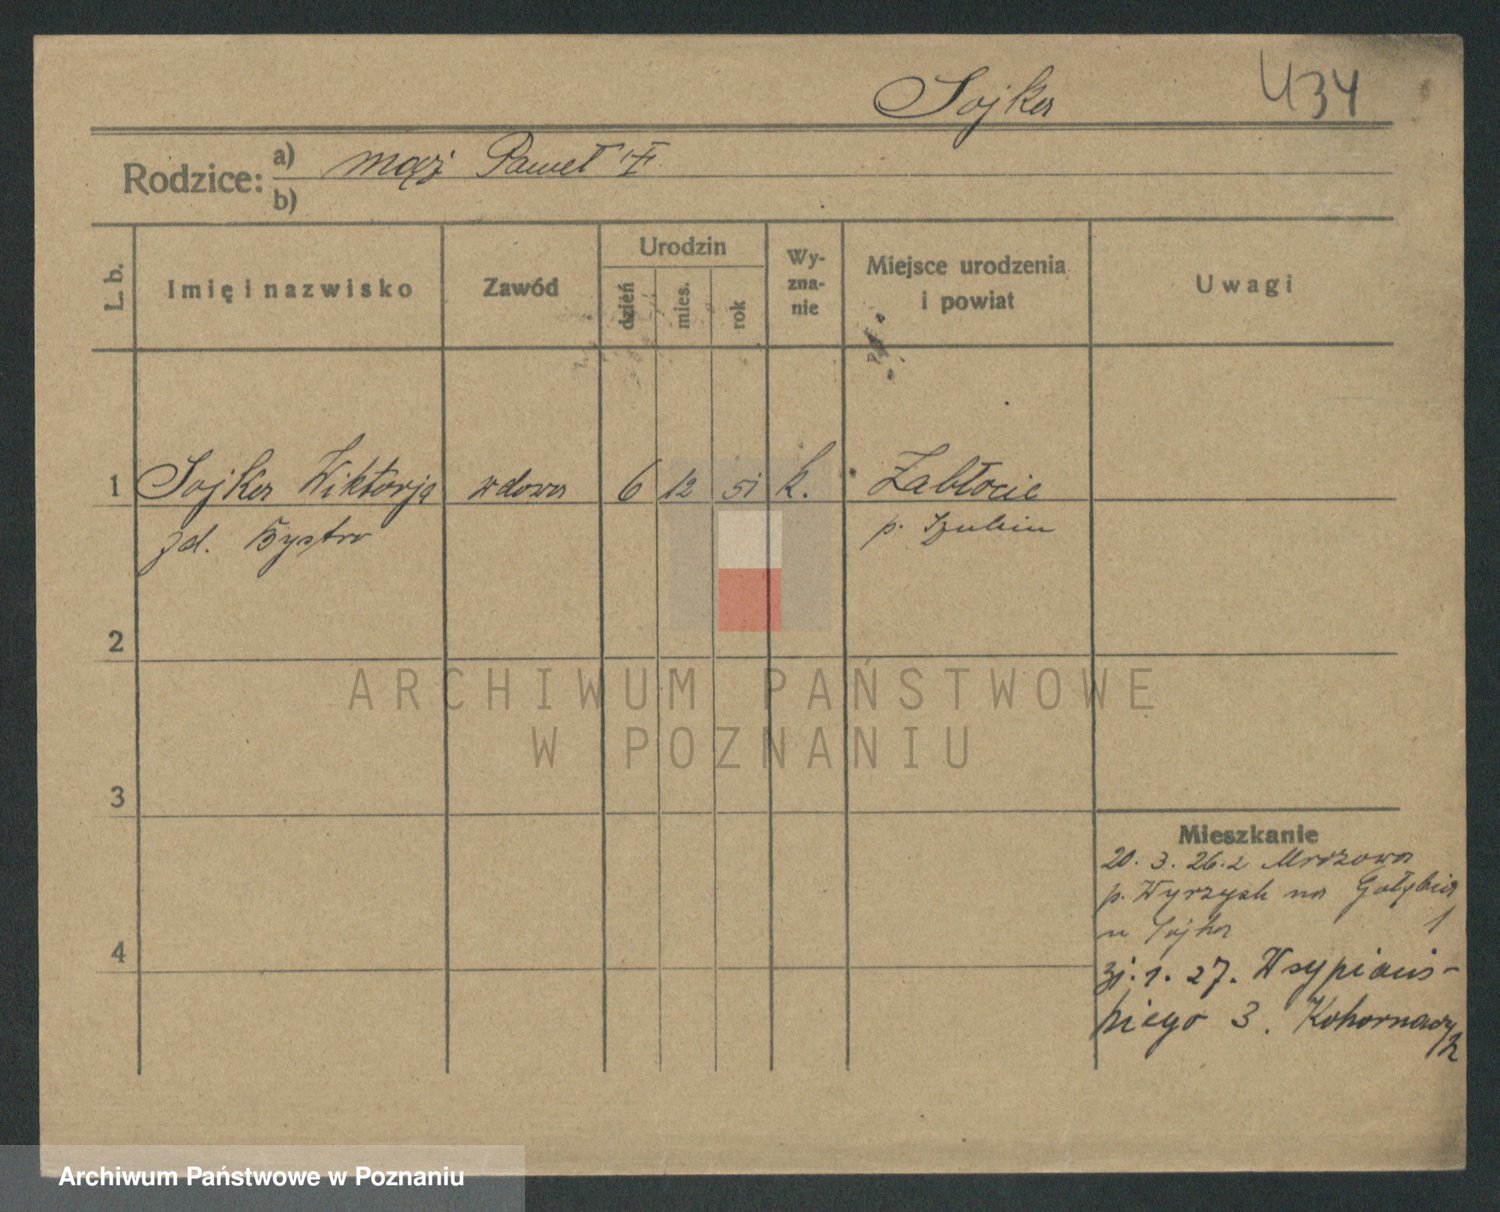 Sojka 434
Rodzice: a) mąż Paweł
b)
L. b. Imię i nazwisko Zawód Urodzin dzień mies. rok Wy-zna-nie Miejsce urodzenia i powiat Uwagi
1 Sojka Wiktorja wdowa 6 12 51 k. Zabłocie
zd. Bystro p. Szubin
2
ARCHIWUM PAŃSTWOWE
W POZNANIU
3
Mieszkanie
20. 3. 26. z Mrozowa
p. Wyrzysk na Gołębia
u Sojka 1
4
1. 27. Wyspiańs-
kiego 3.
Archiwum Państwowe w Poznaniu